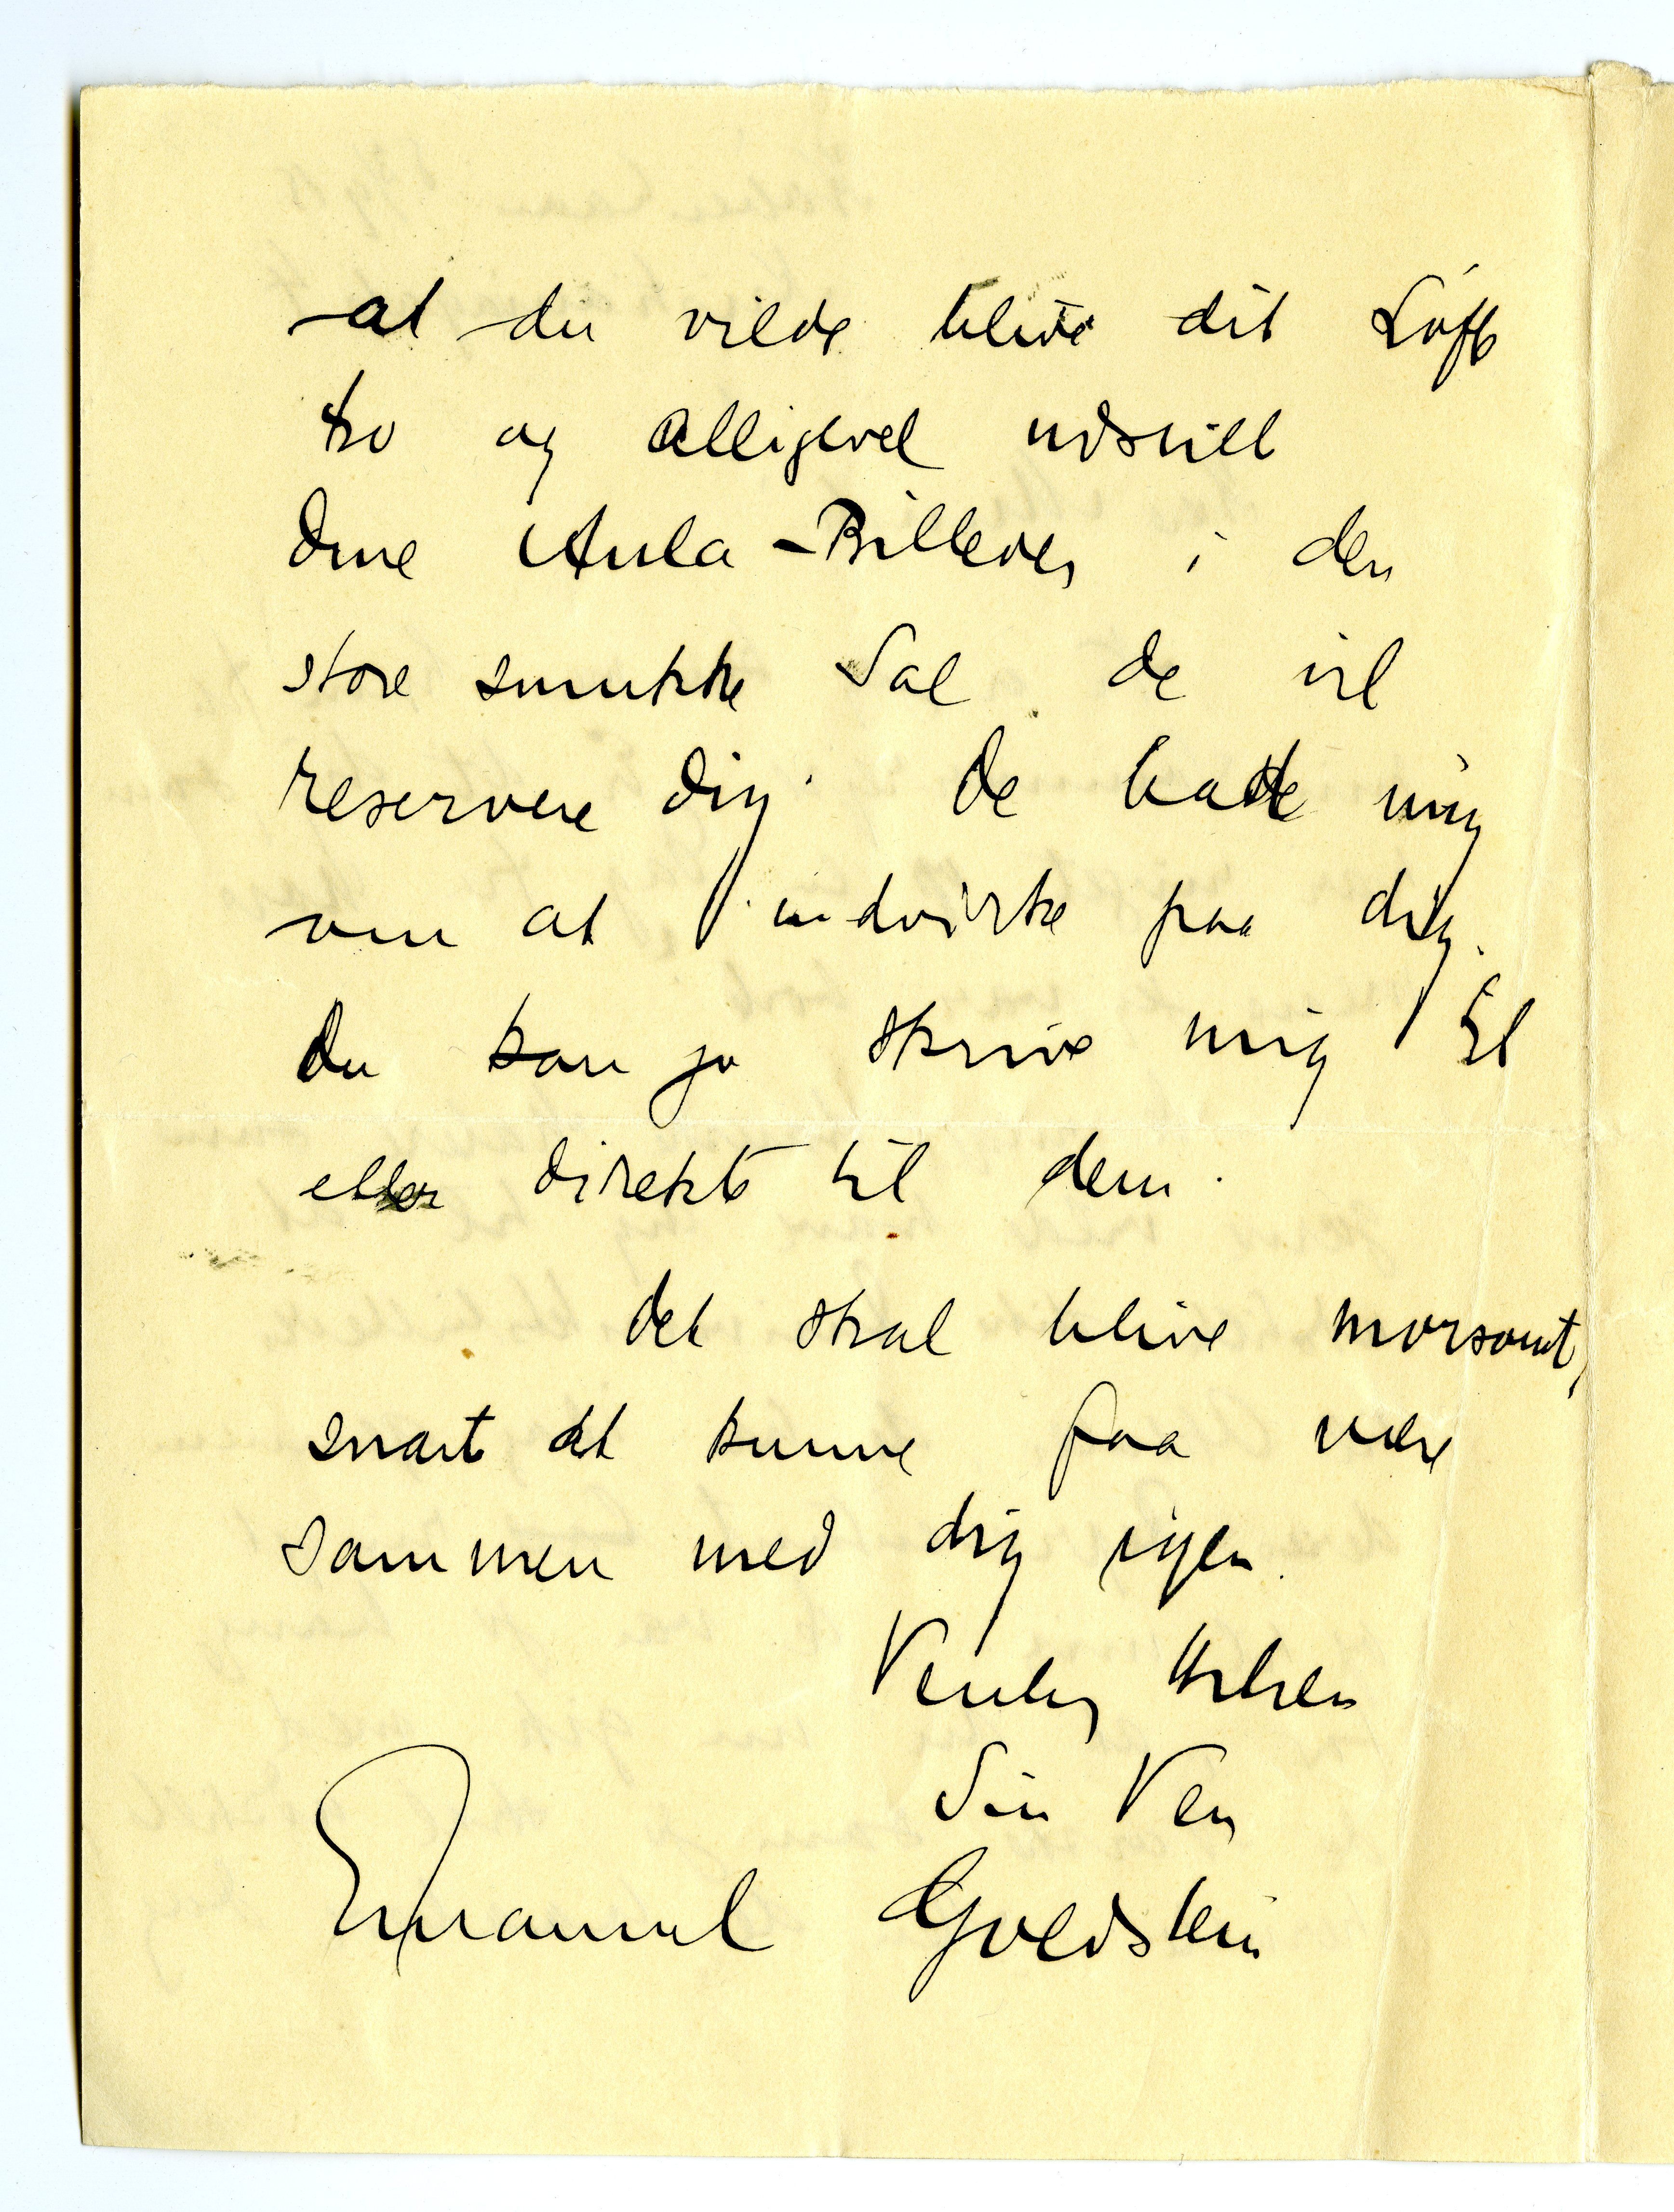 at du vilde blive dit Løfte
tro og alligevel udstille
dine Aula-Billeder i den
store smukke Sal de vil
reservere dig. De bad mig
om at indvirke paa dig.
Du kan jo skrive mig til
eller direkte til dem.
Det skal blive morsomt,
snart at kunne faa være
sammen med dig igen.
Venlig Hilsen
Din Ven
Emanuel Goldstein